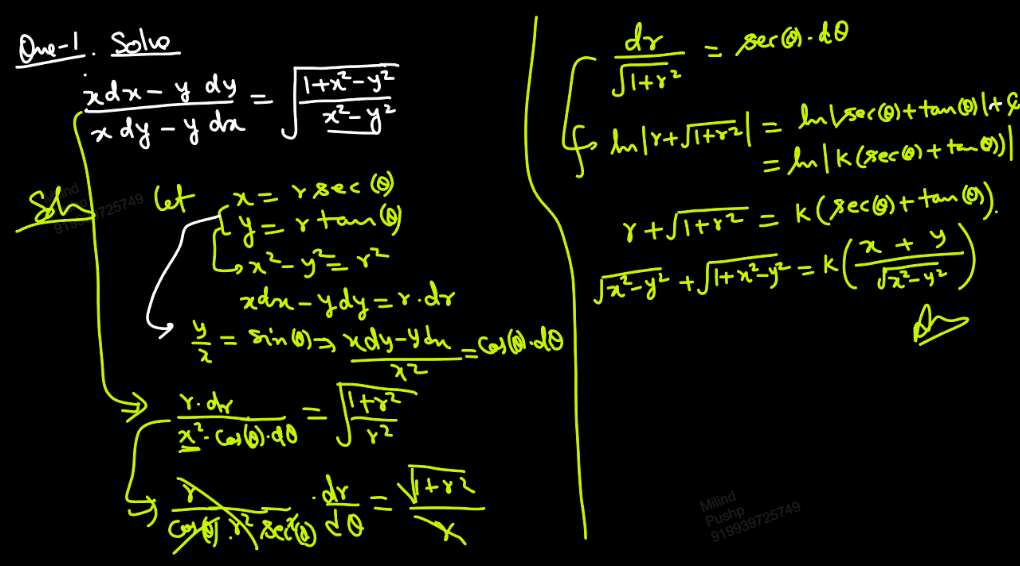 Que-1. Solve
\frac{xdx - y dy}{x dy - y dx} = \sqrt{\frac{1+x²-y²}{x²-y²}}
Sol Let x = r sec θ
y = r tan θ
x²-y² = r²
xdx - ydy = r·dr
\frac{y}{x} = sin θ ⇒ \frac{xdy-ydx}{x²} = cos θ·dθ
\frac{r·dr}{x²·cos θ·dθ} = \sqrt{\frac{1+r²}{r²}}
\frac{r}{cos θ·r² sec² θ}·\frac{dr}{dθ} = \frac{\sqrt{1+r²}}{r}
\frac{dr}{\sqrt{1+r²}} = sec θ·dθ
ln|r+\sqrt{1+r²}| = ln|sec θ+tan θ|+C
= ln|K(sec θ+tan θ)|
r+\sqrt{1+r²} = K(sec θ+tan θ).
\sqrt{x²-y²}+\sqrt{1+x²-y²} = K(\frac{x+y}{\sqrt{x²-y²}})
Ans
Milind
919939725749
Milind
Pushp
919939725749